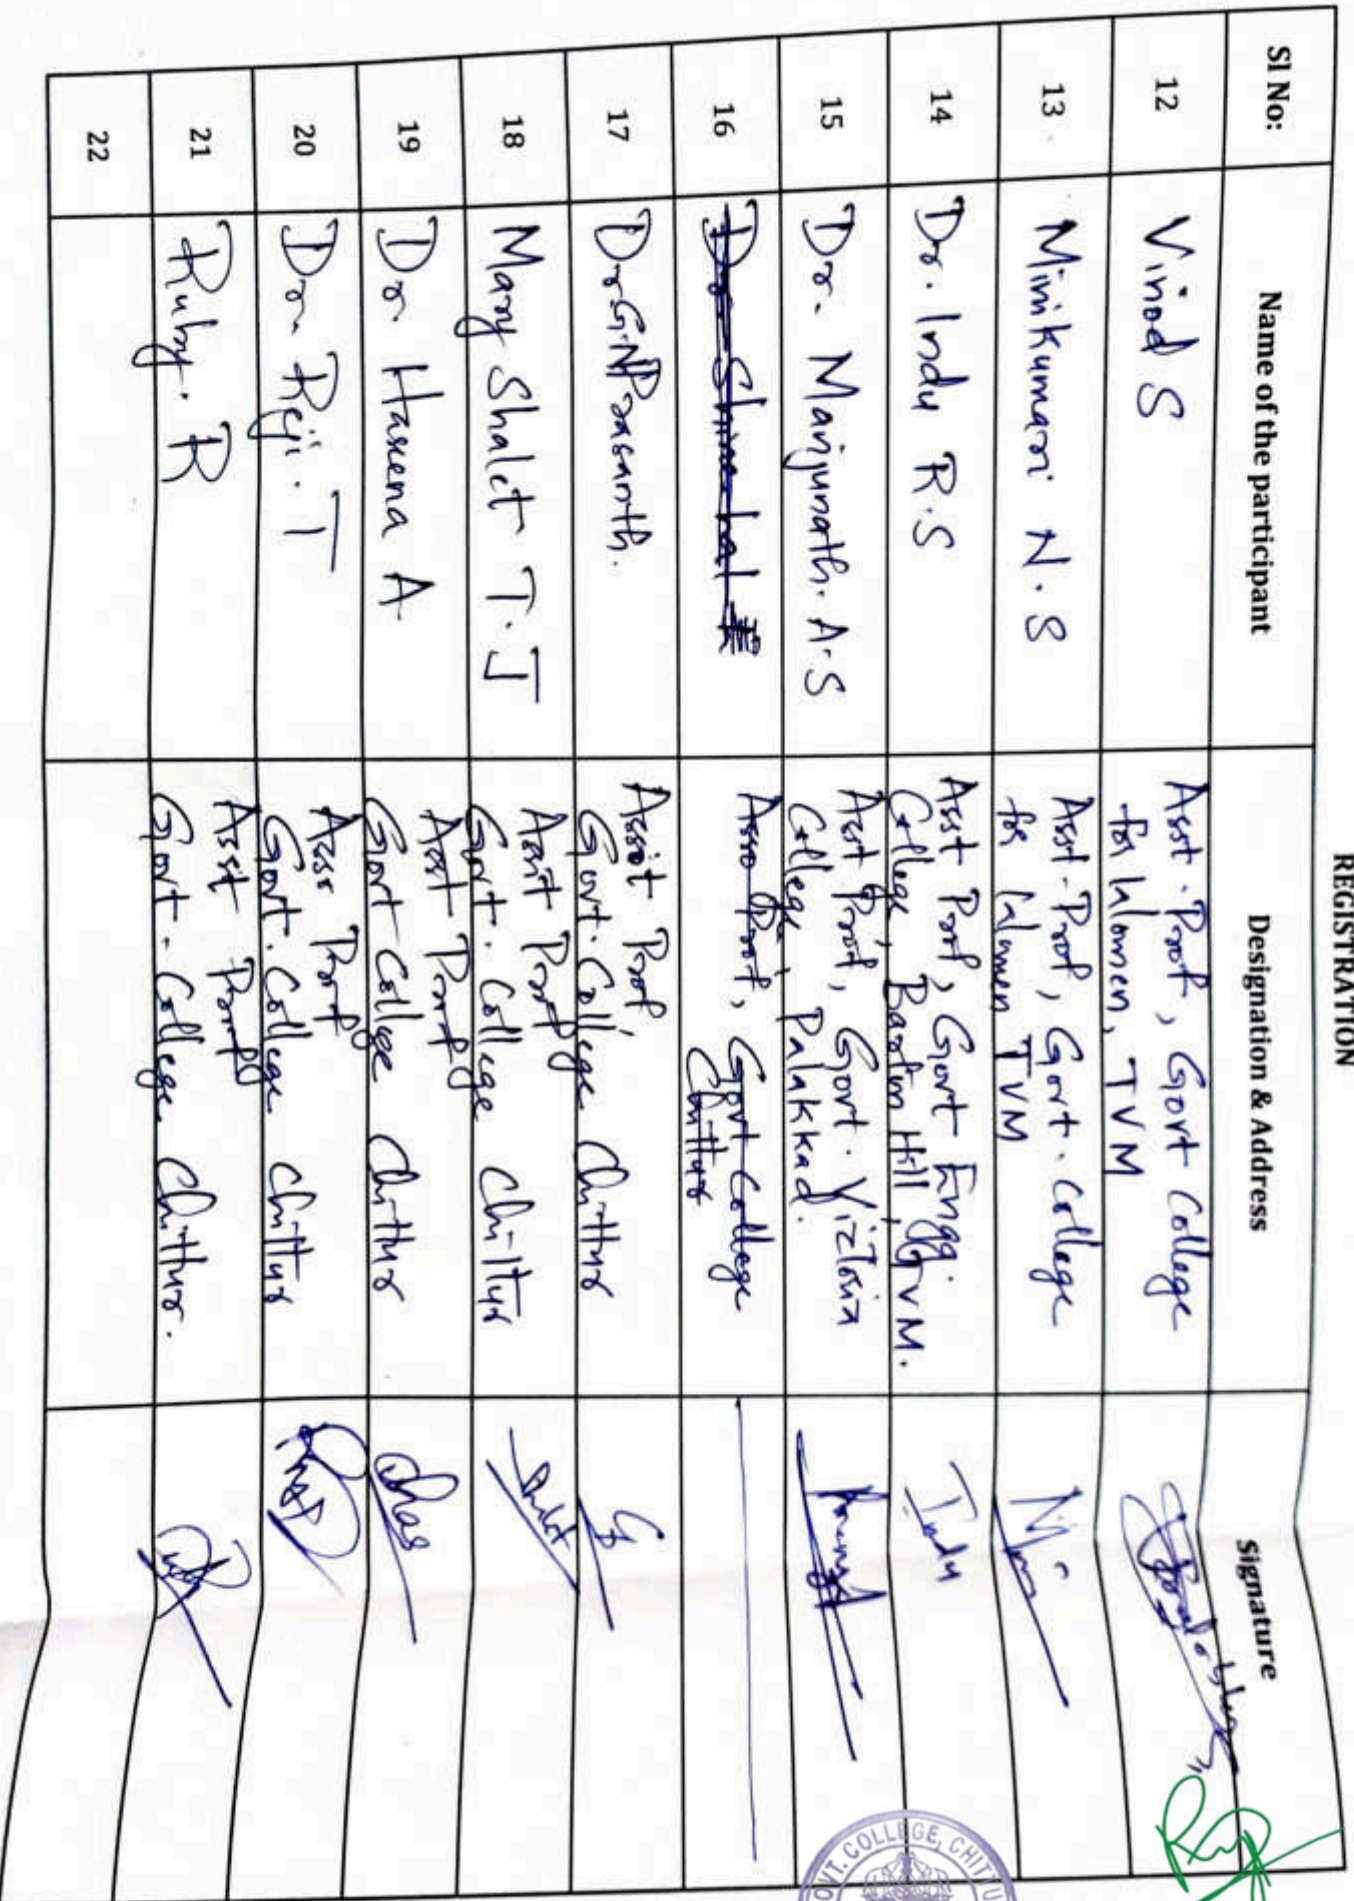 REGISTRATION
Sl No: Name of the participant Designation & Address Signature
12 Vinod S Asst. Prof, Govt College
for Women, TVM
13 Minikumari N.S Asst. Prof, Govt. College
for Women TVM
14 Dr. Indu R.S Asst Prof, Govt Engg. Indu
College, Barton Hill, TVM.
15 Dr. Manjunath. A.S Asst Prof, Govt. Victoria
College, Palakkad.
16 Asso Prof, Govt College
Chittur
17 Dr G N Prasanth. Assit Prof,
Govt. College Chittur
18 Mary Shalet T.J Assit Prof
Govt. College Chittur
19 Dr. Haseena A Asst Prof
Govt College Chittur
20 Dr. Reji. T Asso Prof
Govt. College Chittur
21 Ruby. R Asst Prof
Govt. College Chittur.
22
GOVT. COLLEGE, CHITTU